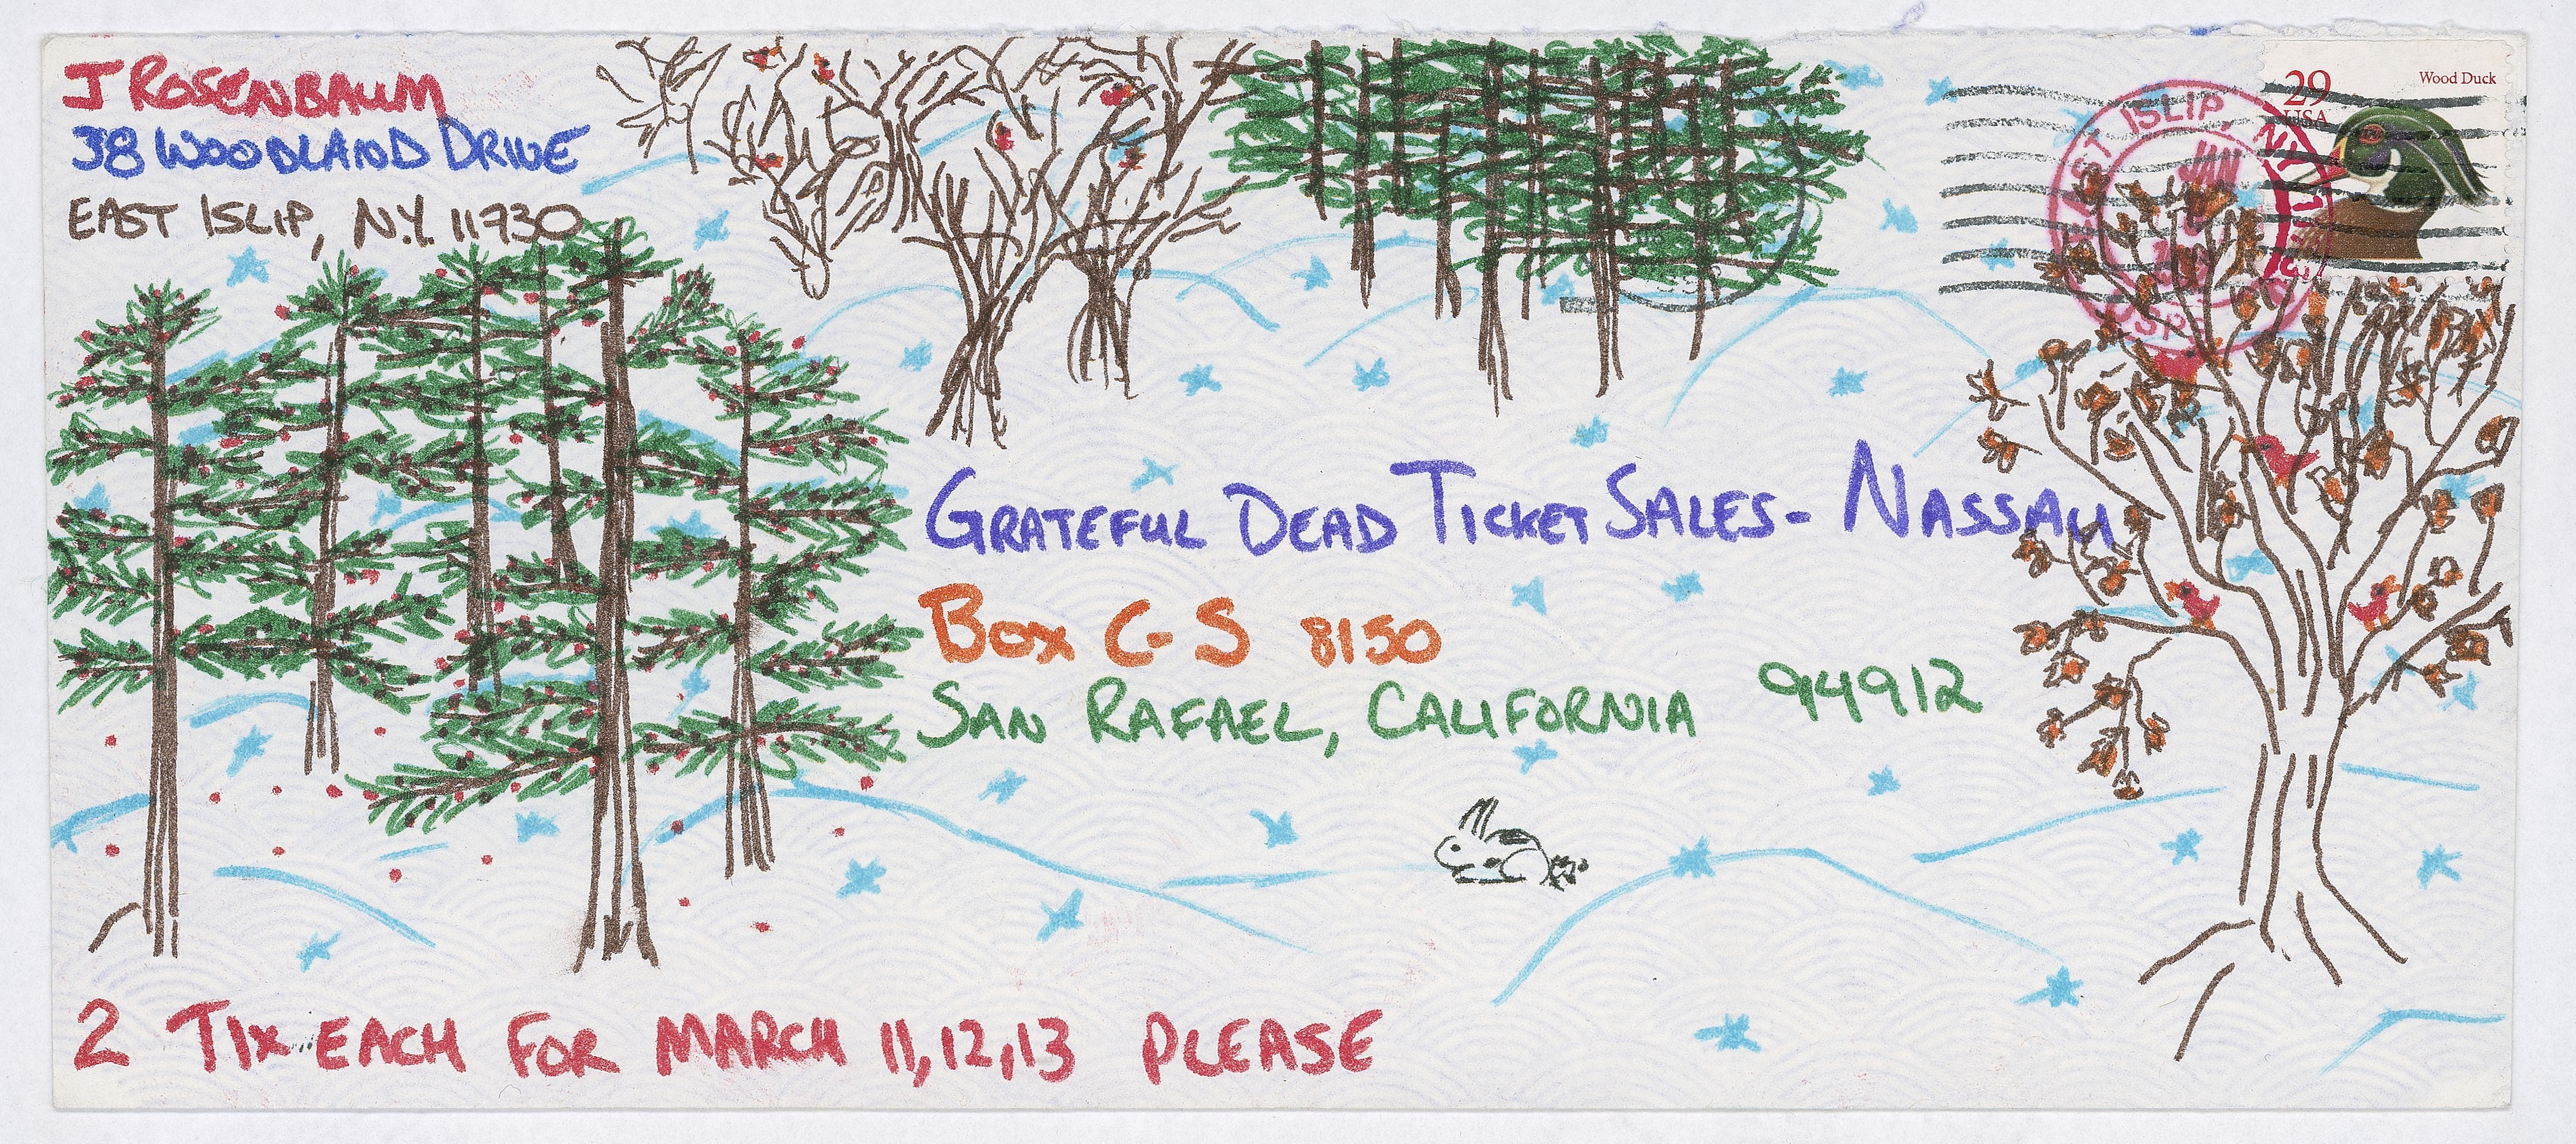 J ROSENBAUM
38 WOODLAND DRIVE
EAST ISLIP, N.Y. 11730
29
USA
Wood Duck
EAST ISLIP, N.Y.
JAN
USPS
GRATEFUL DEAD TICKET SALES- NASSAU
BOX C-S 8150
SAN RAFAEL, CALIFORNIA 94912
2 TIX EACH FOR MARCH 11,12,13 PLEASE